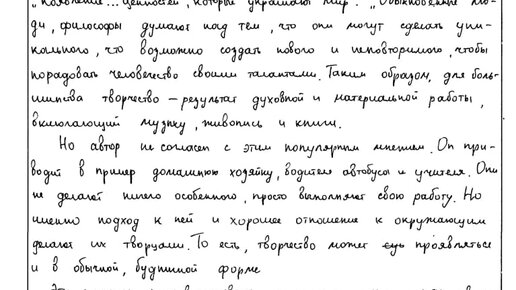 "появление... ценностей, которые украшают мир". "Обыкновенные лю-
ди, философы думают над тем, что они могут сделать уни-
кального, что возможно создать нового и неповторимого, чтобы
порадовать человечество своими талантами. Таким образом, для боль-
шинства творчество – результат духовной и материальной работы,
включающий музыку, живопись и книги.
Но автор не согласен с этим популярным мнением. Он при-
водит в пример домашнюю хозяйку, водителя автобуса и учителя. Они
не делают ничего особенного, просто выполняют свою работу. Но
именно подход к ней и хорошее отношение к окружающим
делают их творцами. То есть, творчество может проявляться
и в обычной, будничной форме